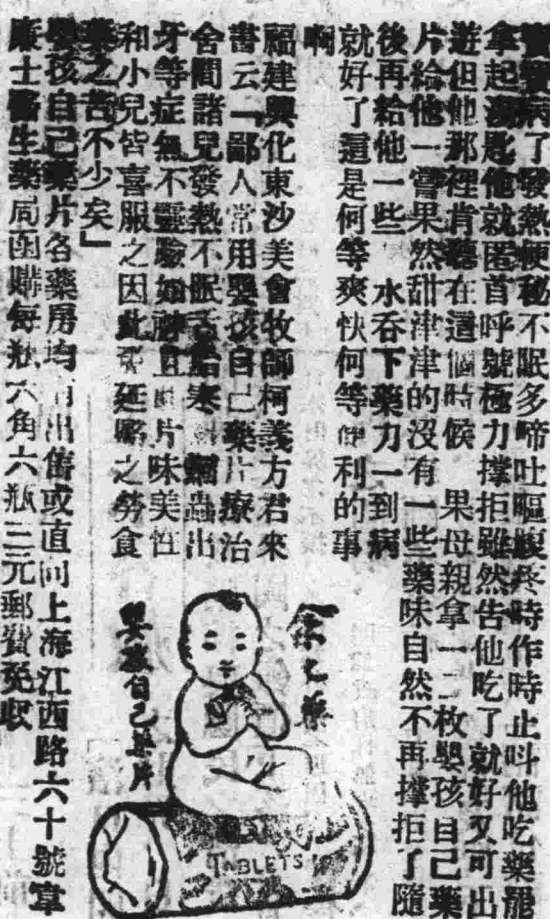 病了發熱便秘不眠多啼吐嘔腹疼時作時止叫他吃藥罷
拿起湯匙他就匿首呼號極力撐拒雖然告他吃了就好又可出
遊但他那裡肯聽在這個時候 果母親拿一二枚嬰孩自己藥
片給他一嘗果然甜津津的沒有一些藥味自然不再撐拒了隨
後再給他一些 水吞下藥力一到病
就好了這是何等爽快何等便利的事
啊
福建興化東沙美會牧師柯義方君來
書云「鄙人常用嬰孩自己藥片療治
舍間諸兒發熱不眠舌 寒 蟲出
牙等症無不靈驗如神且 片味美性
和小兒皆喜服之因此 延醫之勞食
藥之苦不少矣」
嬰孩自己藥片各藥房均 出售或直向上海江西路六十號韋
廉士醫生藥局函購每瓶六角六瓶三元郵費免收
嬰孩自己藥片
TABLETS